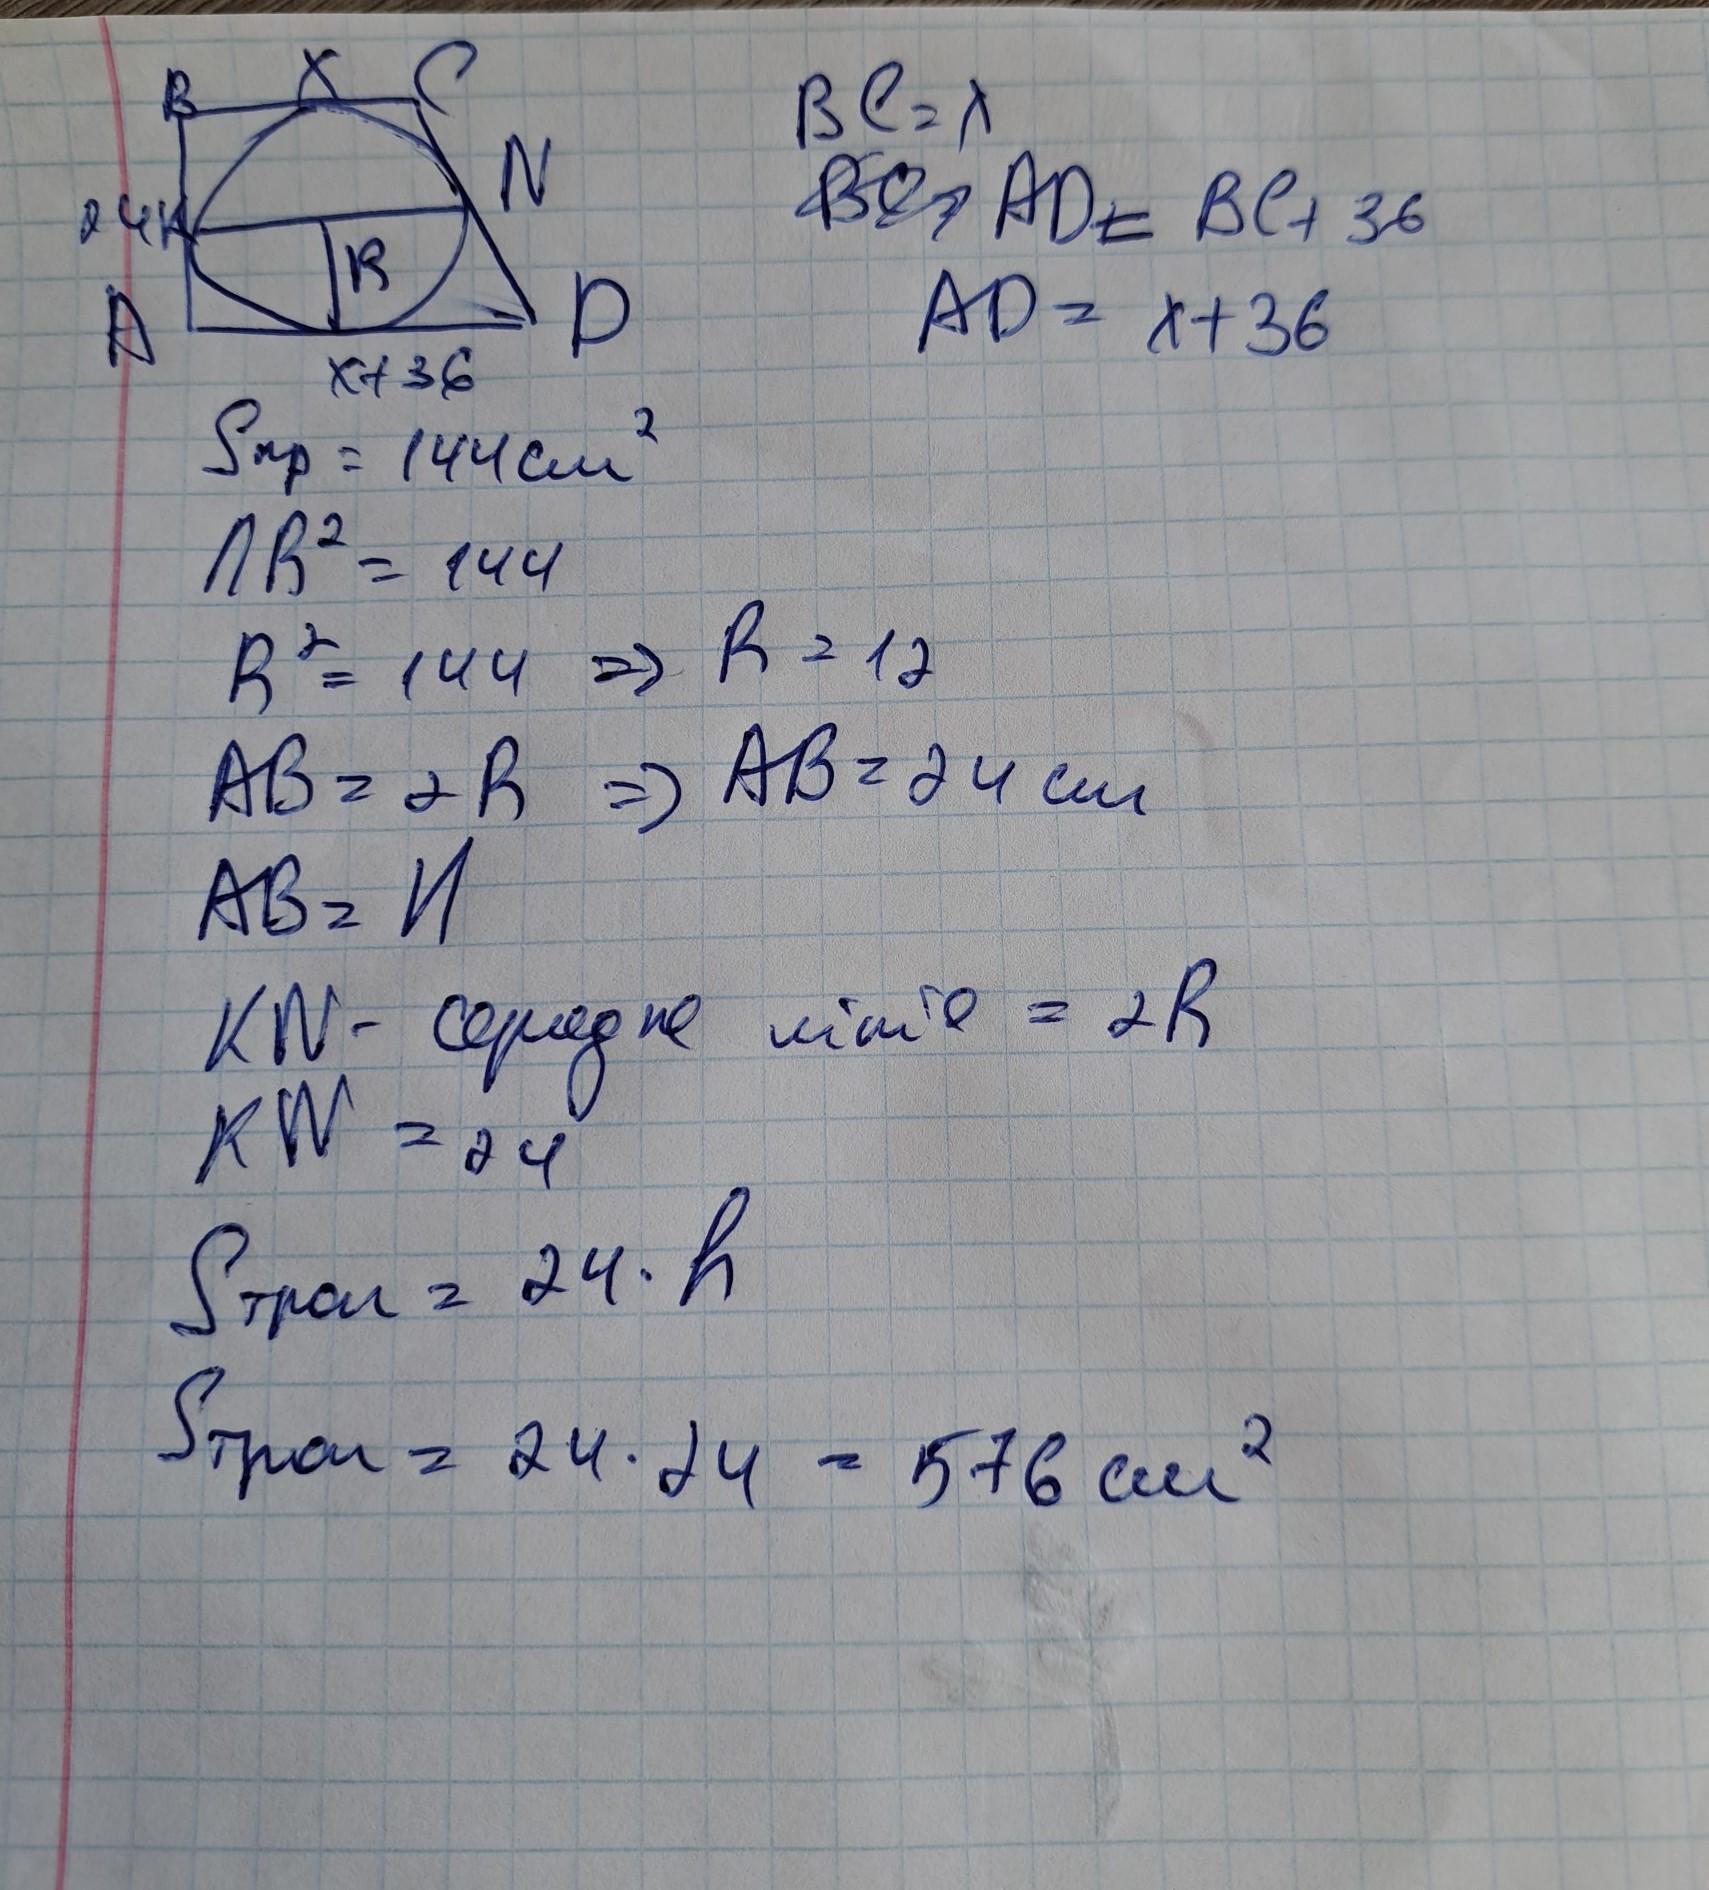 B X C
BC = x
24 K N
R
BC > AD = BC + 36
A D
x+36
AD = x+36
Sкр = 144 см²
ПR² = 144
R² = 144 => R = 12
AB = 2R => AB = 24 см
AB = H
KN - середнє лініє = 2R
KN = 24
Sтрап = 24 · h
Sтрап = 24 · 24 = 576 см²